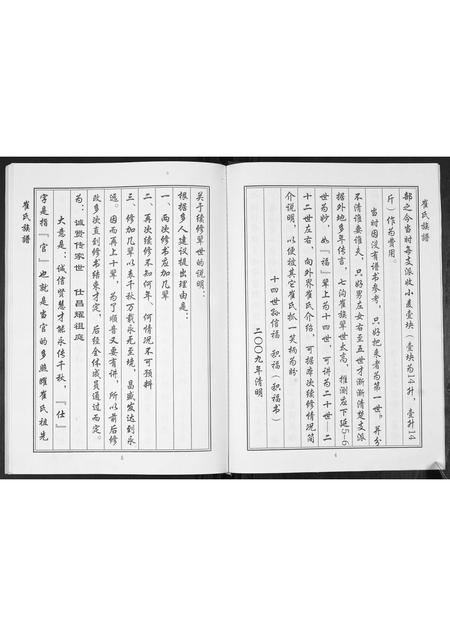 崔氏族谱
部之令当时每支派收小麦壹块（壹块为14升，壹升14
斤）作为费用。
当时因没有谱书参考，只好把来者为第一世，并分
不清谁要谁夫，只好男左女右至五世才渐渐清楚支派
据外地多年传言，七沟崔族辈世太高，推测应下延5-6
世为妙，如『福』辈上为十四世，可讲为二十世—二
十二世左右，向外界崔氏介绍，可据本次续修情况简
介说明，以便被其它崔氏抓一笑柄为盼。
十四世孙信福 积福（积福书）
二00九年清明
4
关于续修辈世的说明：
根据多人建议提出理由是：
一、两次修书应加几辈
二、再次续修不知何年、何情况不可预料
三、修加几辈以系千秋万载永无至境，昌盛发达到永
远。因而再上十辈，为了顺音又要有讲，所以前后修
改多次直到修书结束才定，后经全体成员通过而定。
为：诚贤传家世 仕昌耀祖庭
大意是：诚信贤慧才能永传千秋，『仕』
字是指『官』也就是当官的多照耀崔氏祖先
崔氏族谱
5